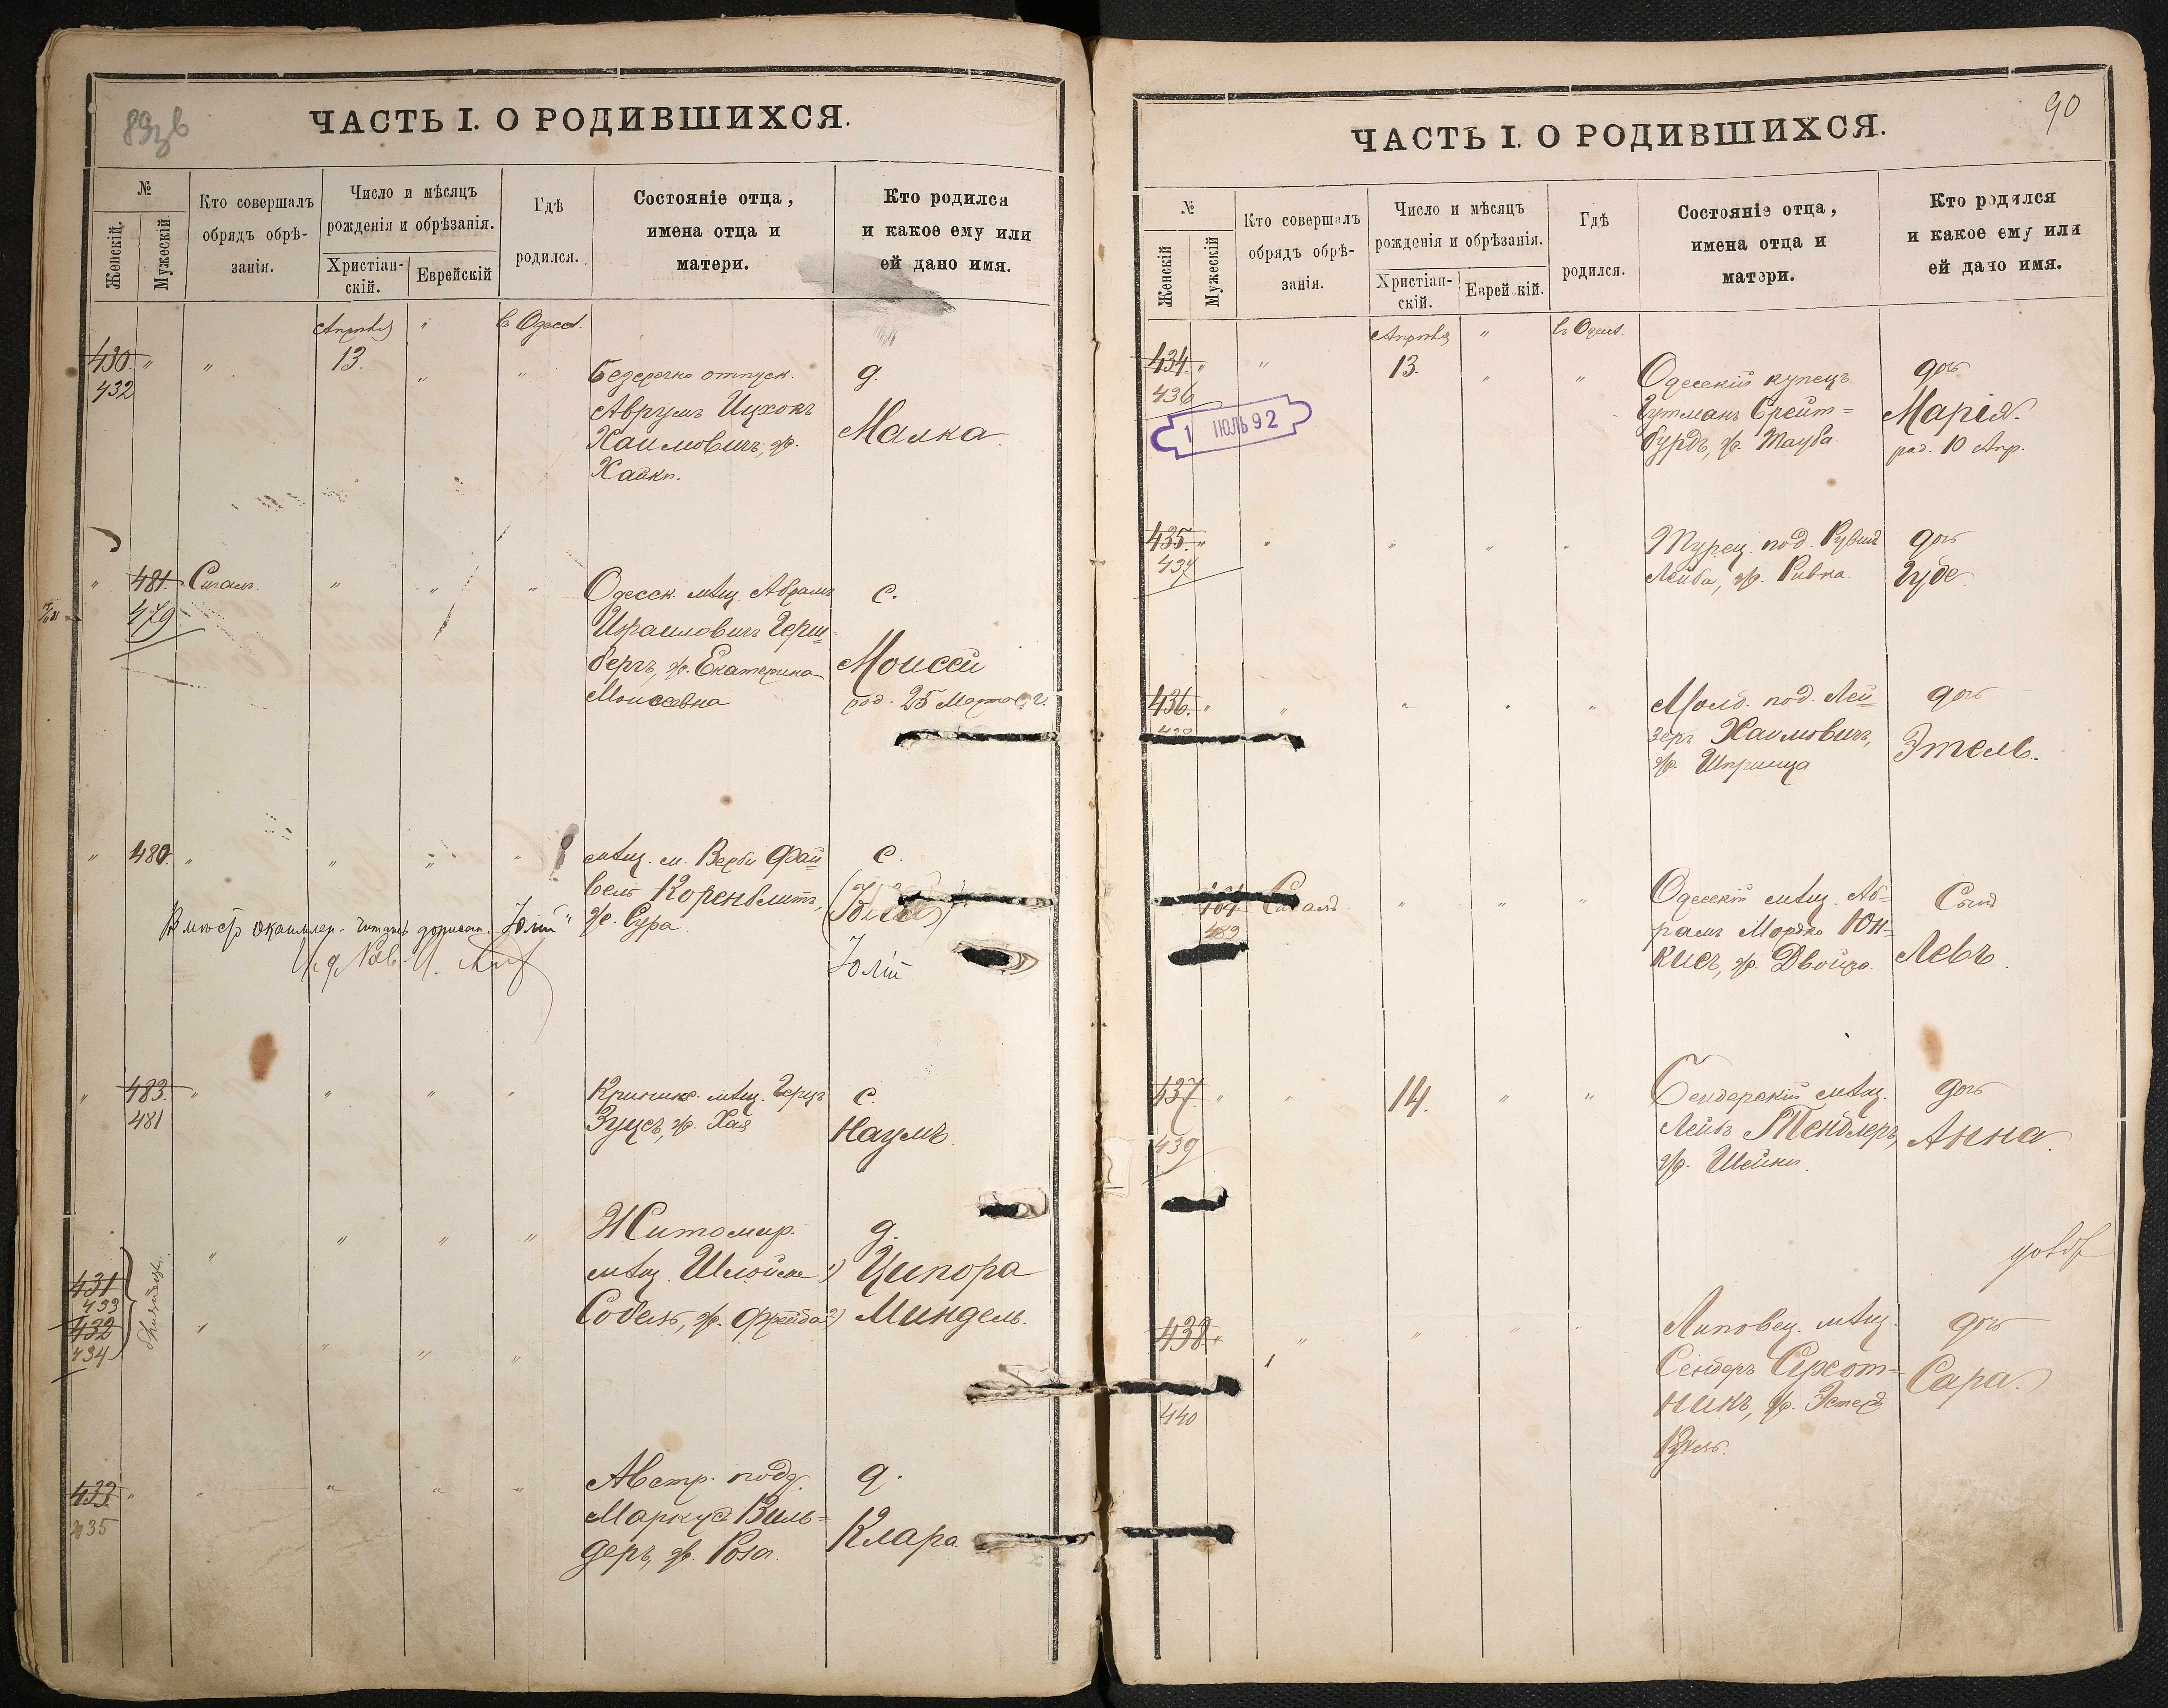 89зв
ЧАСТЬ I. О РОДИВШИХСЯ.
№
Женскій.
Мужескій
Кто совершалъ
обрядъ обрѣ-
занія.
Число и мѣсяцъ
рожденія и обрѣзанія.
Христіан-
скій.
Еврейскій
Гдѣ
родился.
Состояніе отца,
имена отца и
матери.
Кто родился
и какое ему или
ей дано имя.
Апрѣля " в Одес.
430. " " 13. " "
432
Безсрочно отпуск.
Аврумъ Ицхокъ
Хаимовичъ, ж.
Хайки.
д.
Малка.
" 481. Сигалъ. " " "
479
Одесск. мѣщ. Абрамъ
Израиловичъ Герш=
бергъ, ж. Екатерина
Моисеевна
с.
Моисей
род. 25 Марта с. г.
" 480. " " " "
мѣщ. м. Вербы Фай=
вель Коренблитъ,
ж. Сура.
с.
Юлій
" 483. " " " "
481
мѣщ. Герцъ
Зусъ, ж. Хая
с.
Наумъ.
" " " "
431
433
432
434
близнецы.
Житомир.
мѣщ. Шлойме
Собель, ж. Фрейда
д.
1) Ципора
2) Миндель.
433. " " " " "
435
Австр. подд.
Маркус Виль=
деръ, ж. Роза.
д.
Клара.
90
ЧАСТЬ I. О РОДИВШИХСЯ.
№
Женскій
Мужескій
Кто совершалъ
обрядъ обрѣ-
занія.
Число и мѣсяцъ
рожденія и обрѣзанія.
Христіан-
скій.
Еврейскій.
Гдѣ
родился.
Состояніе отца,
имена отца и
матери.
Кто родился
и какое ему или
ей дано имя.
Апрѣля " въ Одес.
434. " " 13. " "
436
1 ІЮЛЬ 92
Одесскій купецъ
Гутманъ Брейт=
бурдъ, ж. Тауба.
дочь
Марія.
род. 10 Апр.
435. " " " " "
437
Турец. под. Рувинъ
Лейба, ж. Ривка.
дочь
Гуде
436. " " " " "
438
Молд. под. Лей=
зеръ Хаимовичъ,
ж. Шпринца
дочь
Этель.
Сигалъ " " "
Одесскій мѣщ. Аб=
рамъ Мордко Юн=
кисъ, ж. Двойра.
Сынъ
Левъ.
437. " " 14. " "
439
Бендерскій мѣщ.
Лейбъ Тендлеръ,
ж. Шейки.
дочь
Анна.
438. " " " " "
440
Липовец. мѣщ.
Сендеръ
никъ, ж. Эстеръ
дочь
Сара.